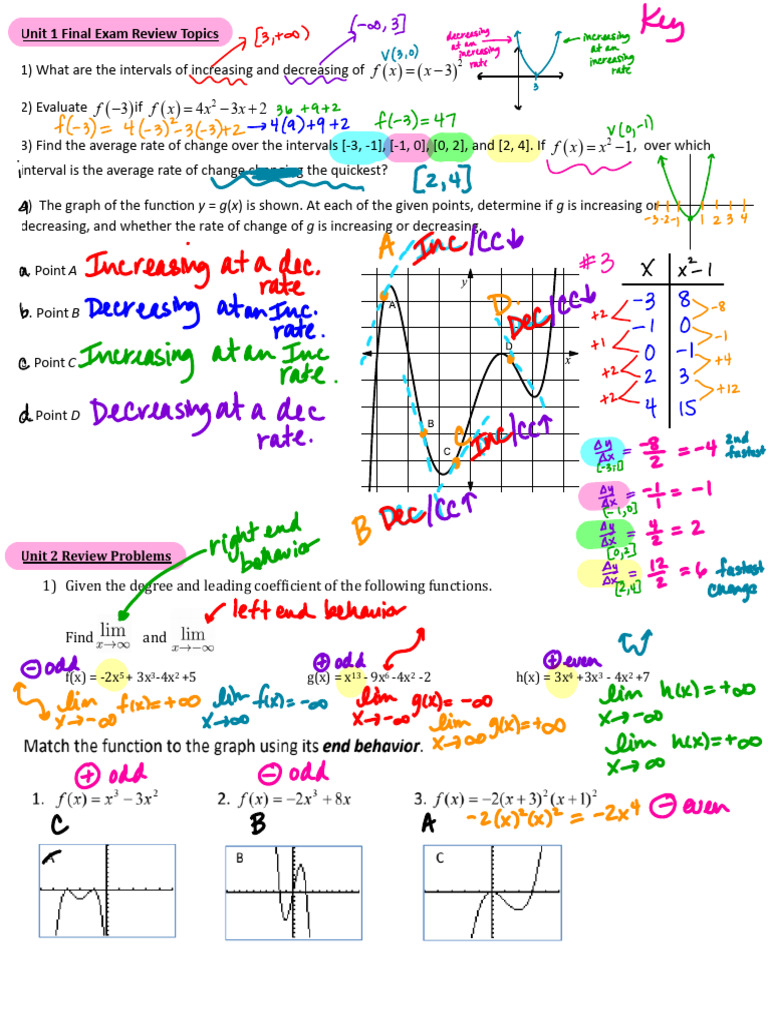 Key
Unit 1 Final Exam Review Topics
[3,+∞)
(-∞,3]
V(3,0)
decreasing at an increasing rate
increasing at an increasing rate
3
1) What are the intervals of increasing and decreasing of f(x)=(x−3)²
2) Evaluate f(−3) if f(x)=4x²−3x+2 36+9+2
f(-3)= 4(-3)²-3(-3)+2 → 4(9)+9+2 f(-3)=47
V(0,-1)
3) Find the average rate of change over the intervals [-3, -1], [-1, 0], [0, 2], and [2, 4]. If f(x)=x²−1, over which
interval is the average rate of change changing the quickest? [2,4]
-3 -2 -1 1 2 3 4
4) The graph of the function y = g(x) is shown. At each of the given points, determine if g is increasing or
decreasing, and whether the rate of change of g is increasing or decreasing.
a. Point A Increasing at a dec. rate
b. Point B Decreasing at an Inc. rate.
c. Point C Increasing at an Inc rate.
d. Point D Decreasing at a dec rate.
A Inc/CC↓
D Dec/CC↓
C Inc/CC↑
B Dec/CC↑
y
x
A
B
C
D
#3
x x²-1
-3 8
-1 0
0 -1
2 3
4 15
+2
+1
+2
+2
-8
-1
+4
+12
Δy/Δx [-3,-1] = -8/2 = -4 2nd fastest
Δy/Δx [-1,0] = -1/1 = -1
Δy/Δx [0,2] = 4/2 = 2
Δy/Δx [2,4] = 12/2 = 6 fastest change
Unit 2 Review Problems
right end behavior
1) Given the degree and leading coefficient of the following functions.
left end behavior
Find lim x→∞ and lim x→−∞
⊖ odd ⊕ odd ⊕ even
f(x) = -2x⁵+ 3x³-4x² +5 g(x) = x¹³ - 9x⁶ -4x² -2 h(x) = 3x⁴ +3x³ - 4x² +7
lim x→-∞ f(x)=+∞ lim x→∞ f(x)=-∞
lim x→-∞ g(x)=-∞ lim x→∞ g(x)=+∞
lim x→-∞ h(x)=+∞
lim x→∞ h(x)=+∞
Match the function to the graph using its end behavior.
⊕ odd ⊖ odd
1. f(x)=x³−3x² 2. f(x)=−2x³+8x 3. f(x)=−2(x+3)²(x+1)²
C B A -2(x)²(x)² = -2x⁴ ⊖ even
A B C